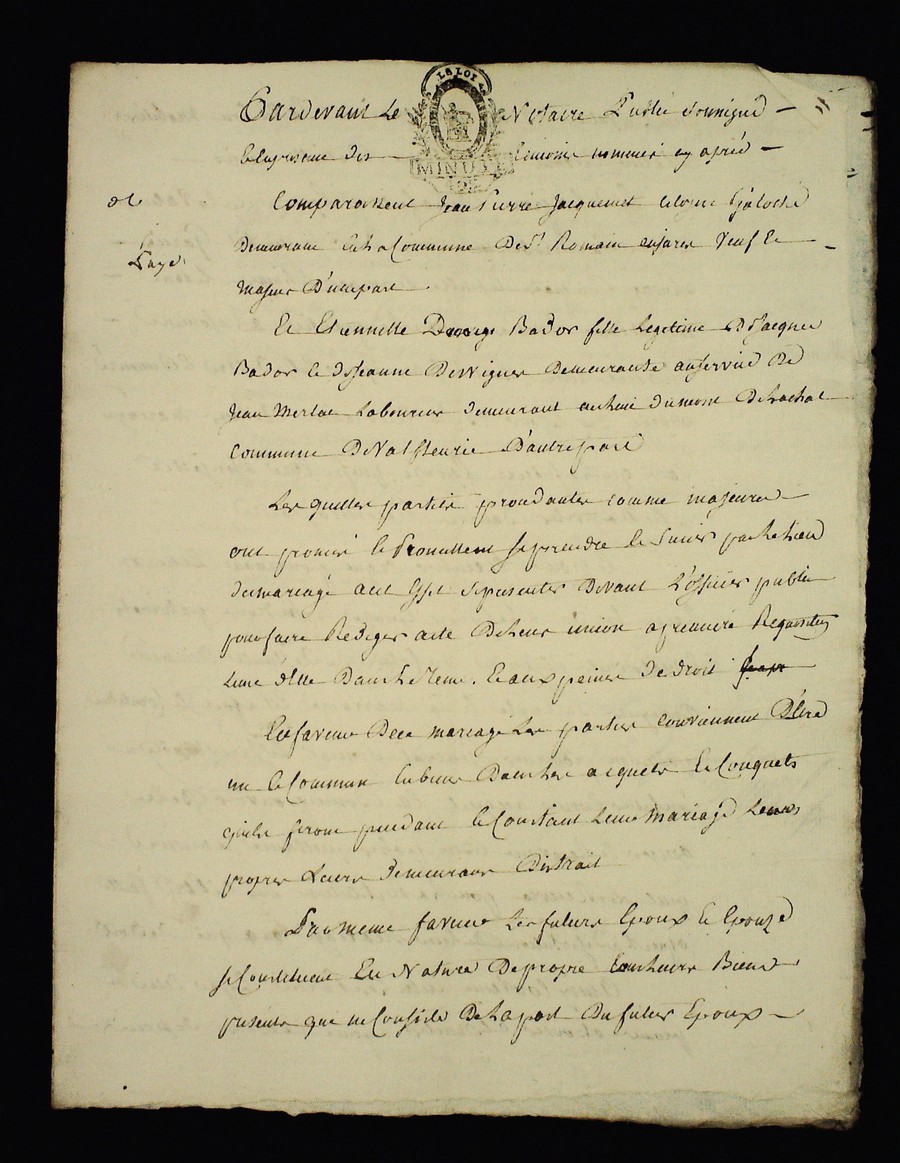 LA LOI
Pardevant Le Notaire Public soussigné
et en presence des temoins nommés cy après
MINUTE
Comparoissent Jean Pierre Jacquemet
demeurant en la Commune De St Romain en jarez veuf et
majeur D'une part.
Et Etiennette Bador fille Legitime De Jacques
Bador et de Jeanne Desvignes Demeurante au service De
Jean Merlat Laboureur demeurant au lieu du mont
commune De Valfleurie D'autre part
Les quelles parties procedantes comme majeures
ont promis et Promettent se prendre et s'unir par le lien
du mariage a cet effet se presenter Devant L'officier public
pour faire Rediger acte De Leur union a premiere Requisition
Lune delle Dans Le tems. Et aux peines De droit
En faveur De ce mariage Les parties conviennent D'être
un et Commun en biens Dans Les acquets et Conquets
qu'ils feront pendant et Constant Leur Mariage Leurs
propres Leurs demeurans Distrait
D'au meme faveur Les futurs Epoux et Epouze
se Constituent En Nature De propre tous leurs Biens
presents que ne Consiste De La part Du futur Epoux